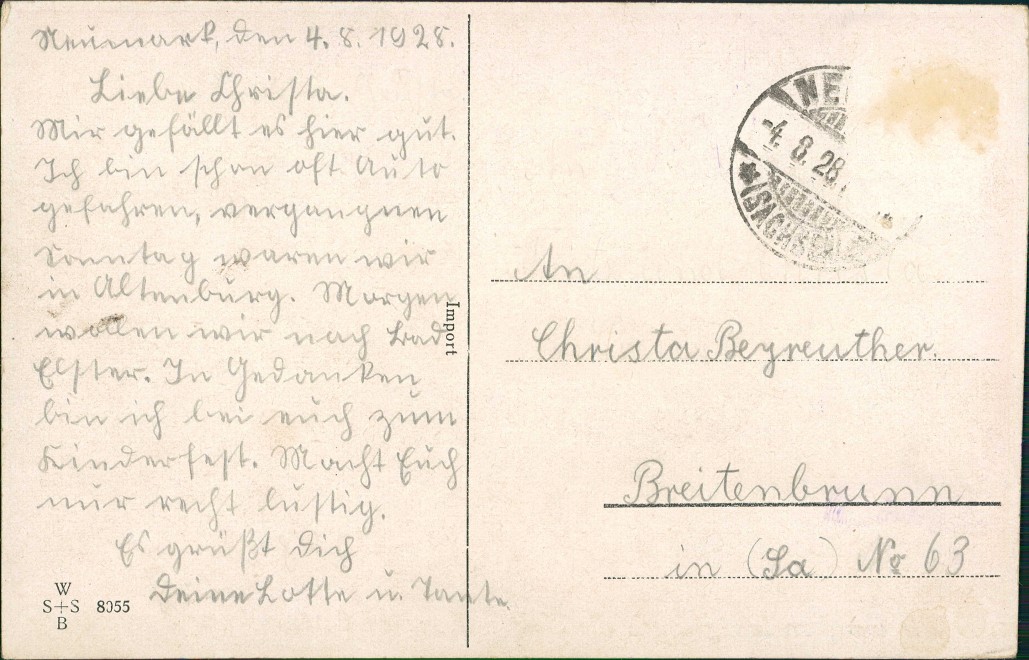 Neumark, den 4. 8. 1928.
Liebe Christa.
Mir gefällt es hier gut.
Ich bin schon oft Auto
gefahren, vergangnen
Sonntag waren wir
in Altenburg. Morgen
wollen wir nach Bad
Elster. In Gedanken
bin ich bei euch zum
Kinderfest. Macht Euch
nur recht lustig.
Es grüßt dich
Deine Lotte u. Tante.
W
S+S 8055
B
Import
NE
-4. 8. 28.
* (SACHSEN)
An
Christa Beyreuther.
Breitenbrunn
in (Sa) No 63